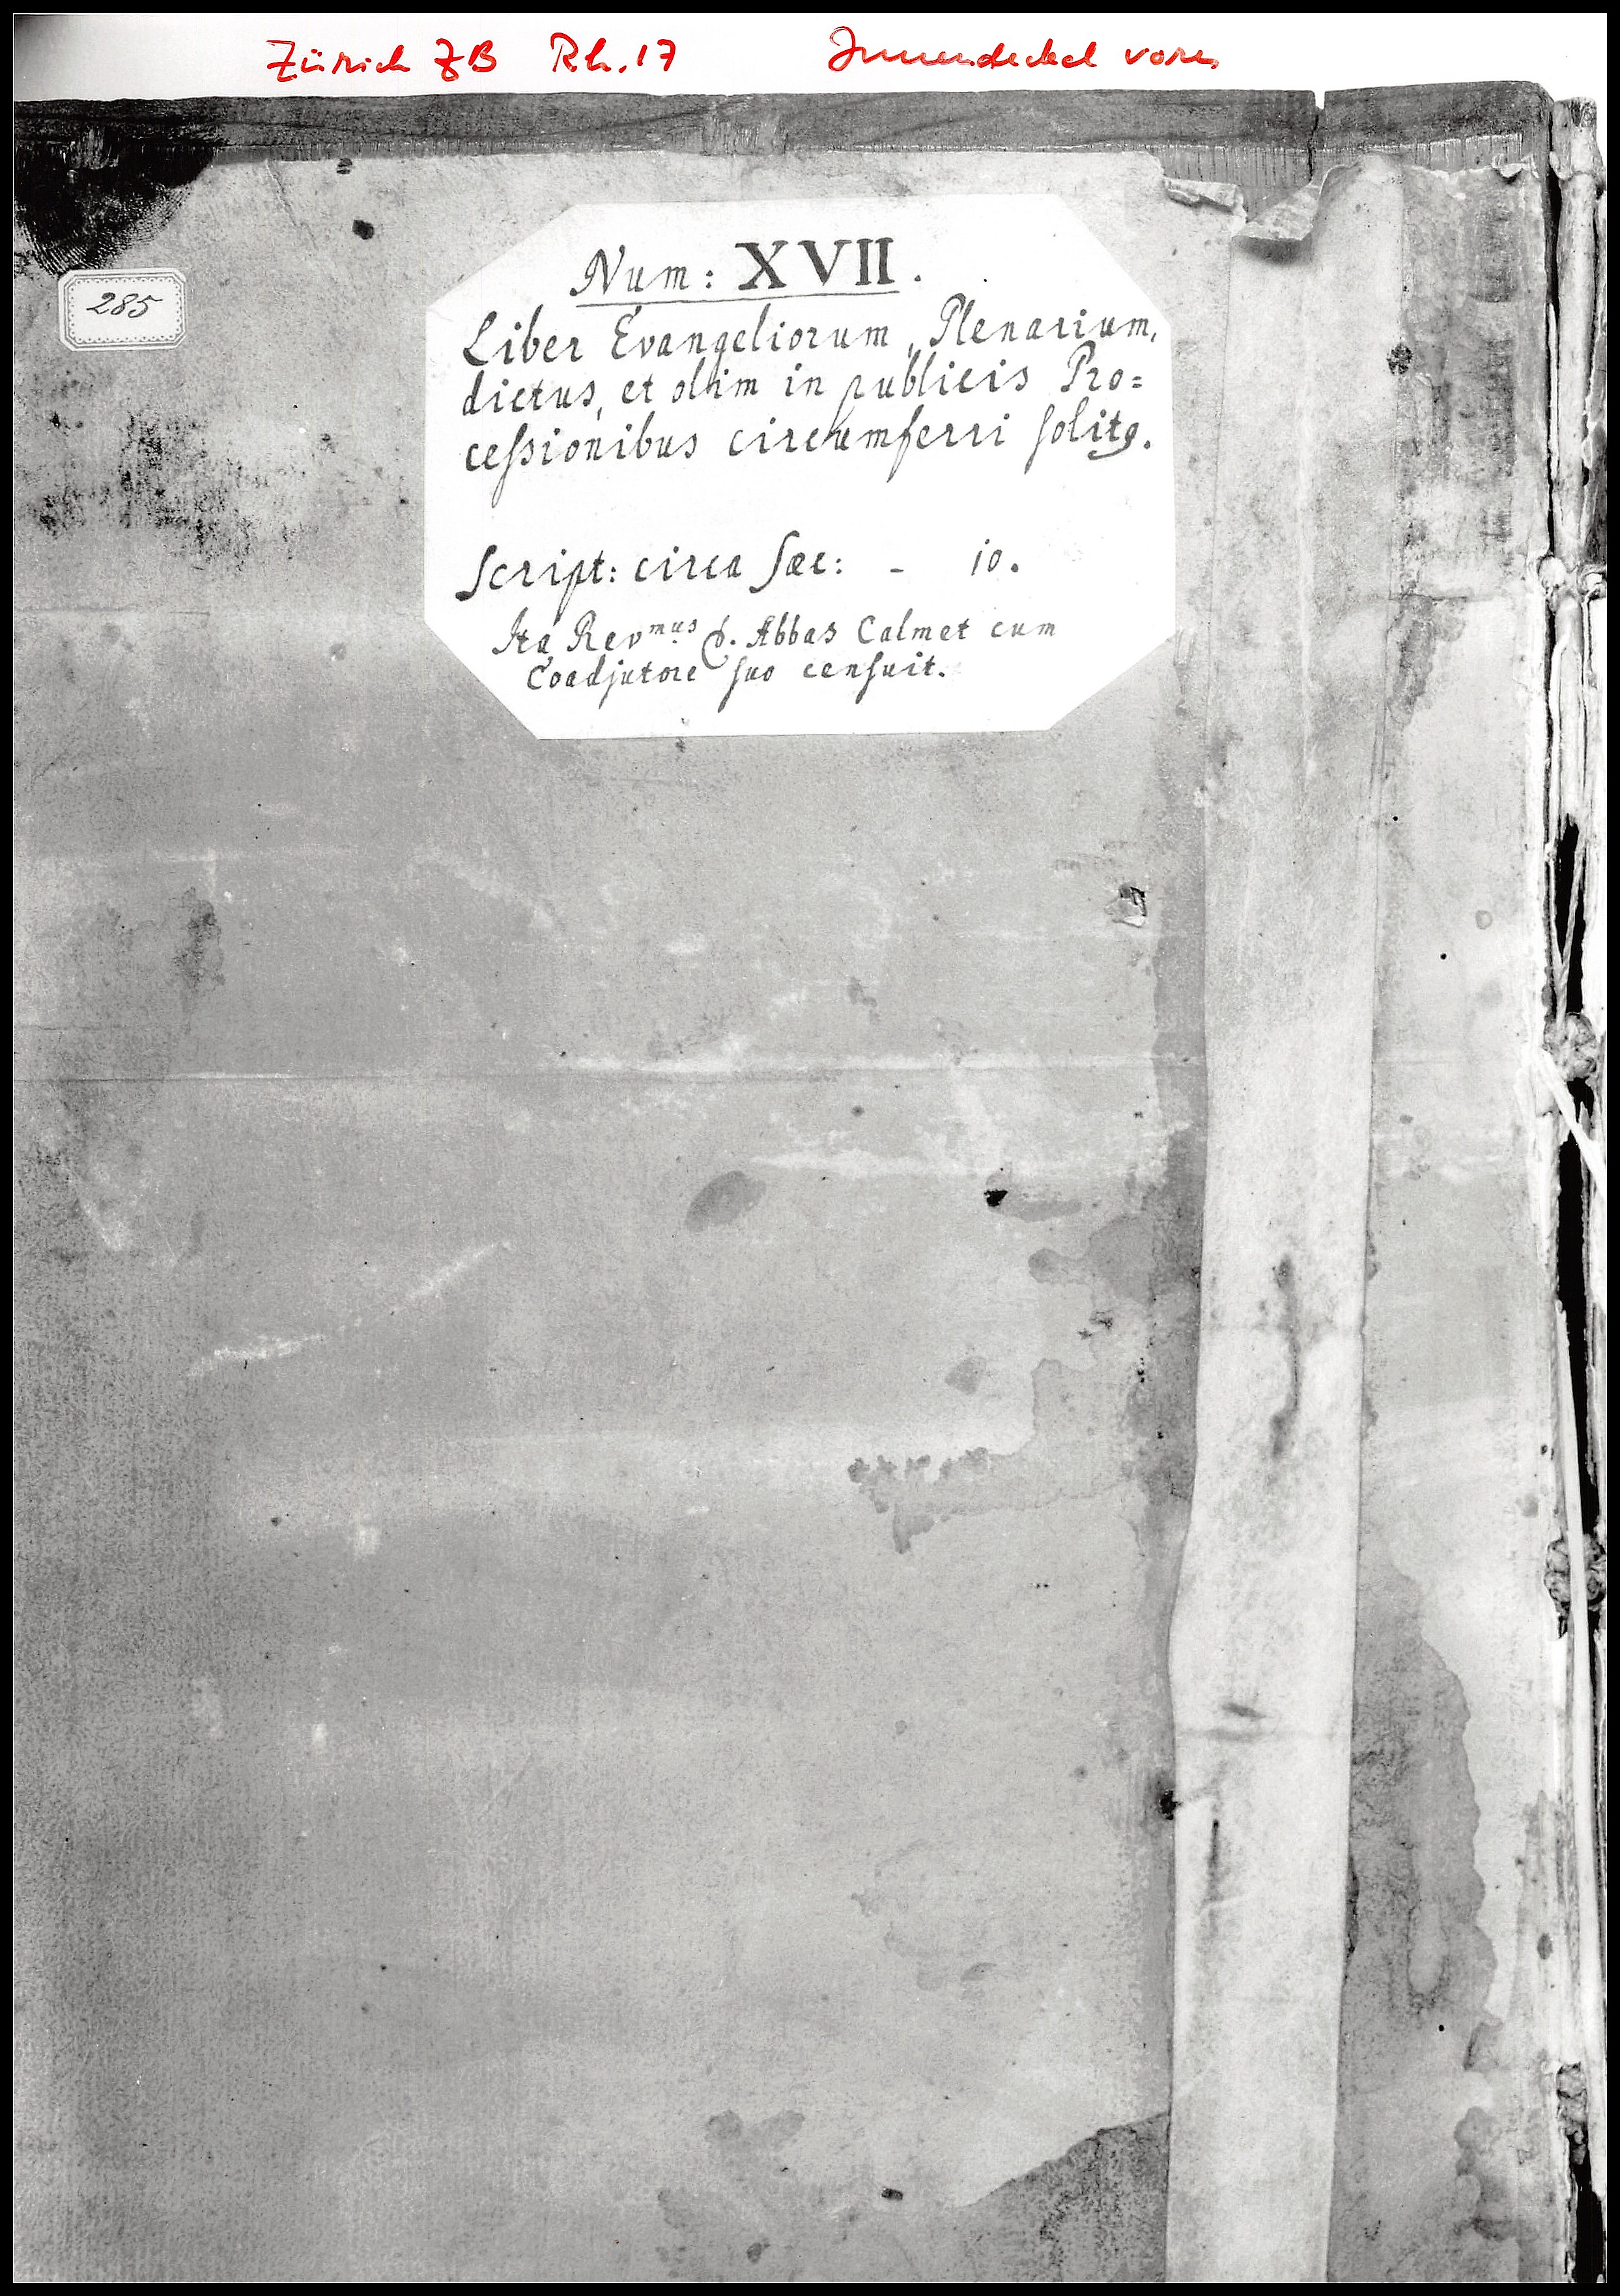 Zürich ZB Rh. 17 Innendeckel vorn
285
Num: XVII.
Liber Evangeliorum, Plenarium,
dictus, et olim in publicis Pro=
ceſsionibus circumferri ſolitꝰ.
Script: circa Sæc: - 10.
Ita Revmus D. Abbas Calmet cum
Coadjutore ſuo cenſuit.